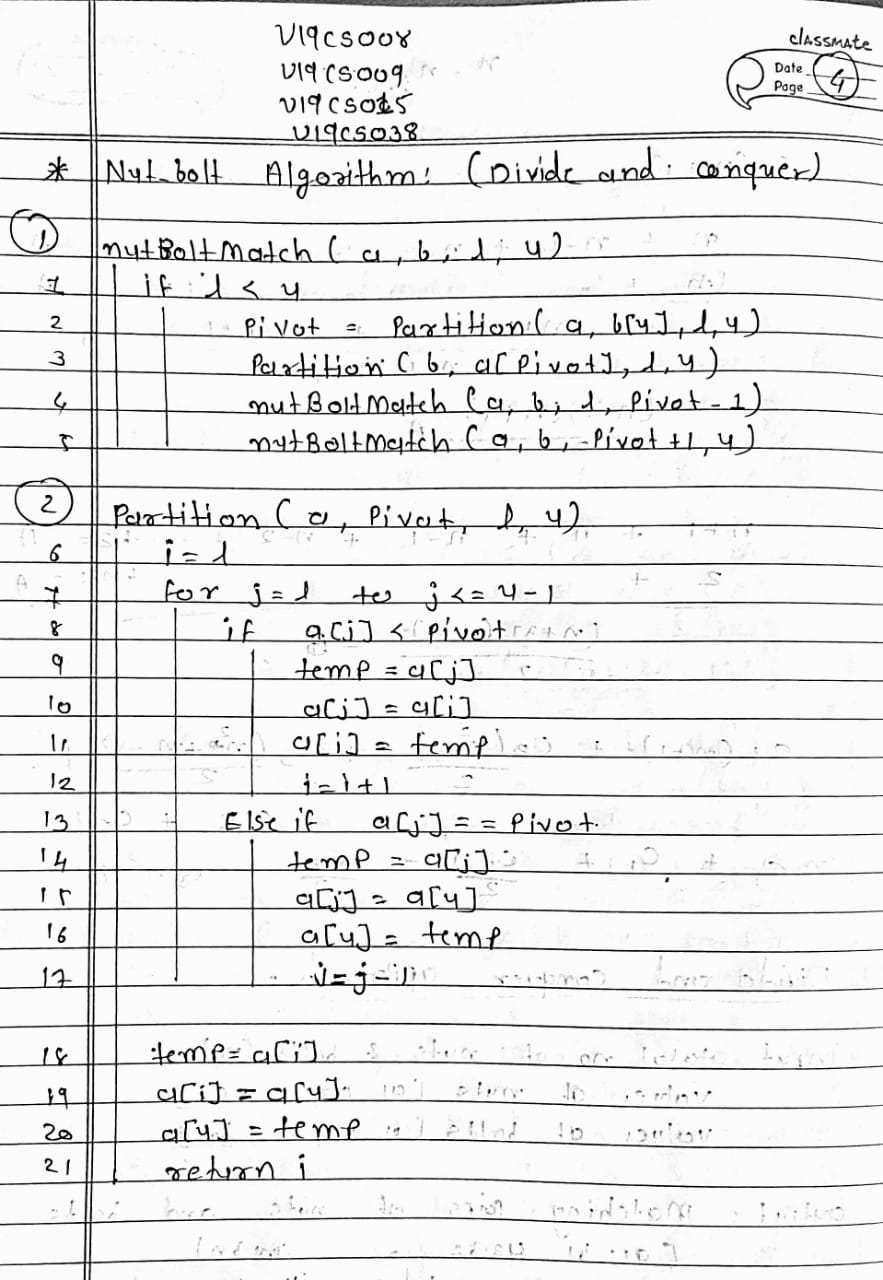 U19CS008
U19CS009
U19CS015
U19CS038
classmate
Date
Page 4
* Nut-bolt Algorithm: (Divide and conquer)
1 nutBoltMatch (a, b, l, u)
1 if l < u
2 Pivot = Partition( a, b[u], l, u)
3 Partition (b, a[Pivot], l, u)
4 nutBoltMatch (a, b, l, Pivot-1)
5 nutBoltMatch (a, b, Pivot+1, u)
2 Partition (a, Pivot, l, u)
6 i = l
7 for j = l to j <= u-1
8 if a[j] < pivot
9 temp = a[j]
10 a[j] = a[i]
11 a[i] = temp
12 i = i + 1
13 Else if a[j] == Pivot
14 temp = a[j]
15 a[j] = a[u]
16 a[u] = temp
17 j = j - 1
18 temp = a[i]
19 a[i] = a[u]
20 a[u] = temp
21 return i